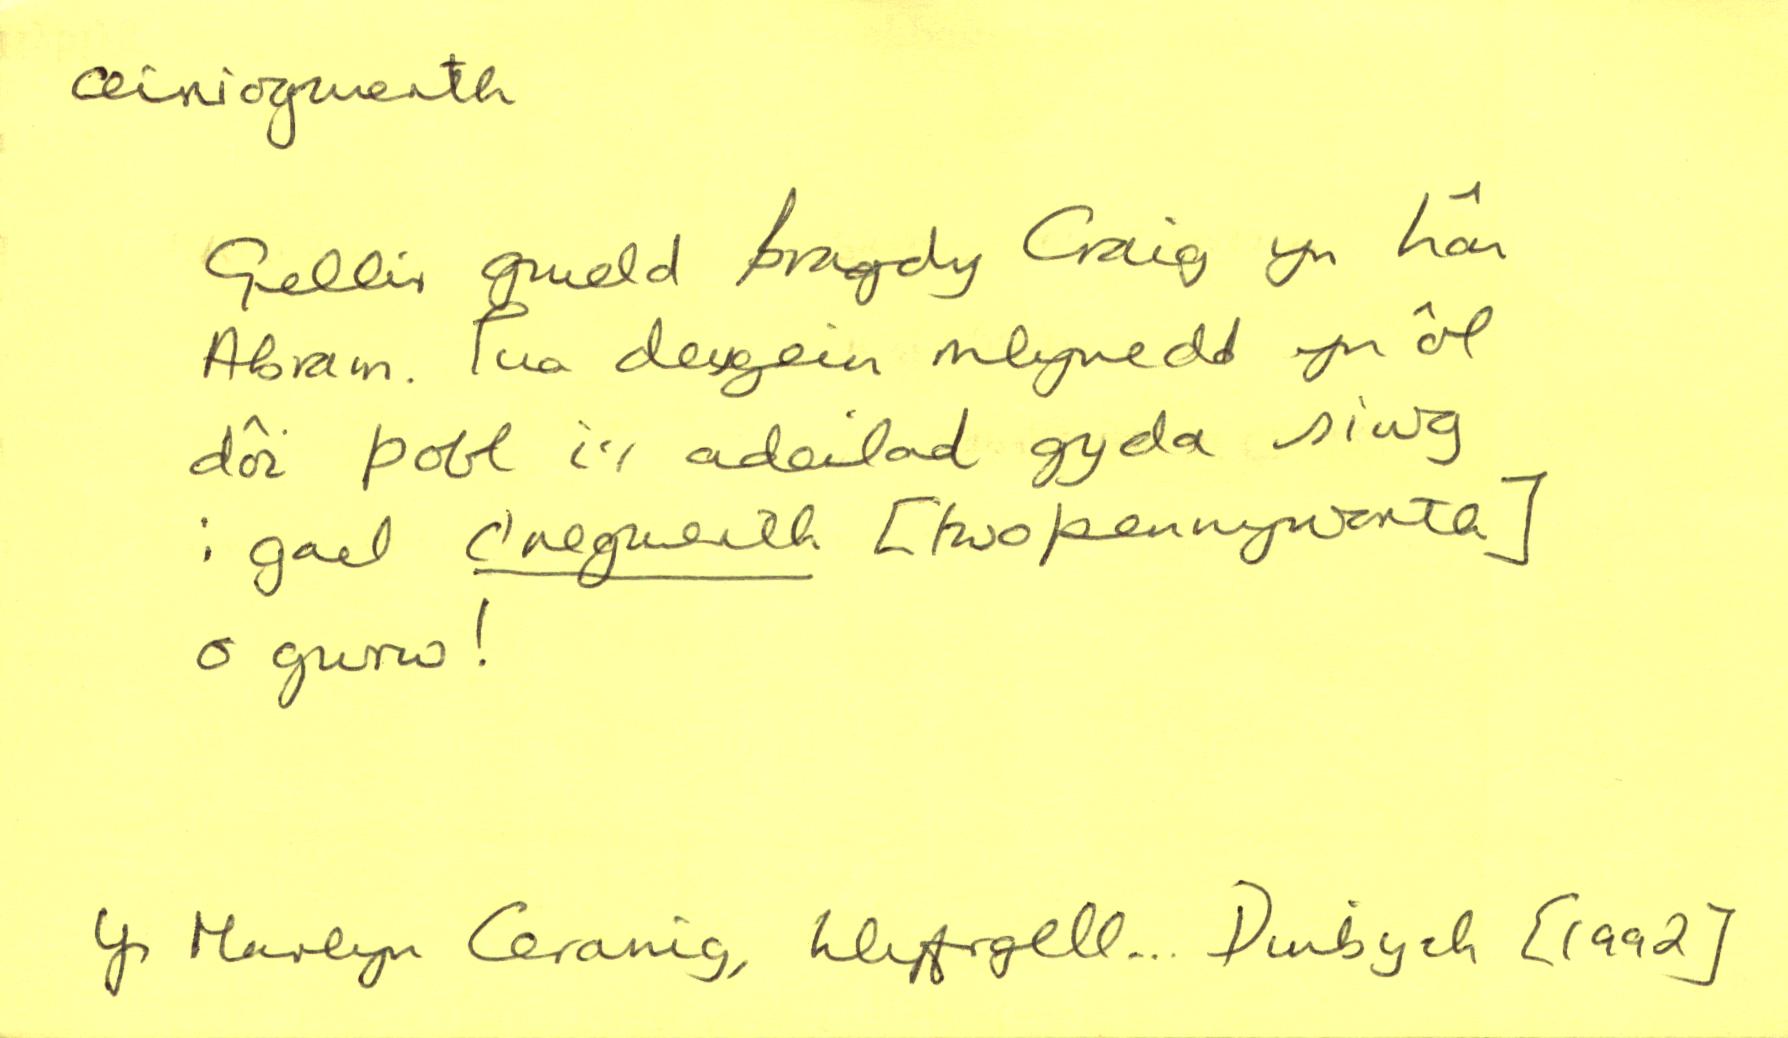 ceiniogwerth
Gellir gweld bragdy Craig yn hân
Abram. Tua deugein mlynedd yn ôl
dôi pobl i'r adeilad gyda siwg
i gael c'negwerth [twopennyworth]
o gwrw!
Yr Marlyn Ceramig, Llyfrgell... Dinbych [1992]